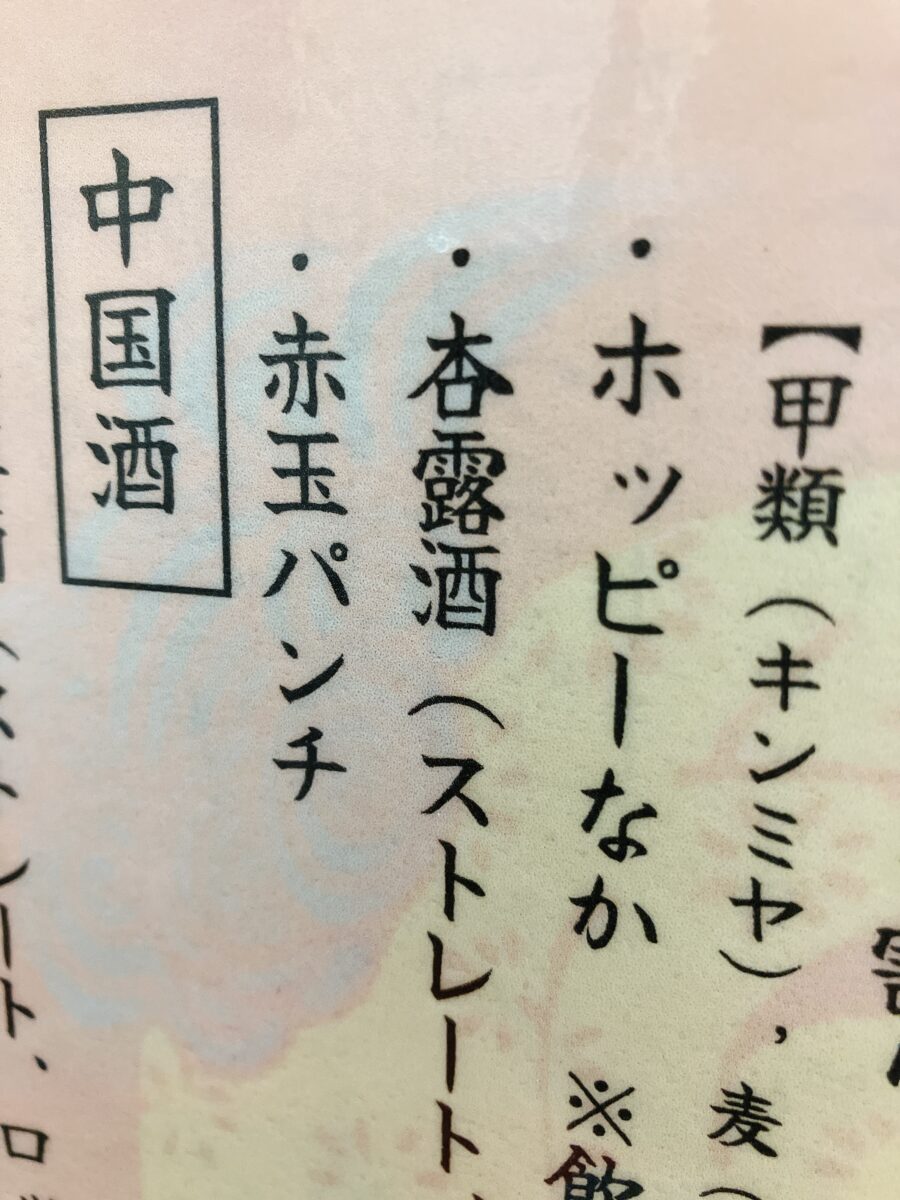 【甲類(キンミヤ),麦(
・ホッピーなか ※飲
・杏露酒(ストレート
・赤玉パンチ
中国酒
ート、ロ